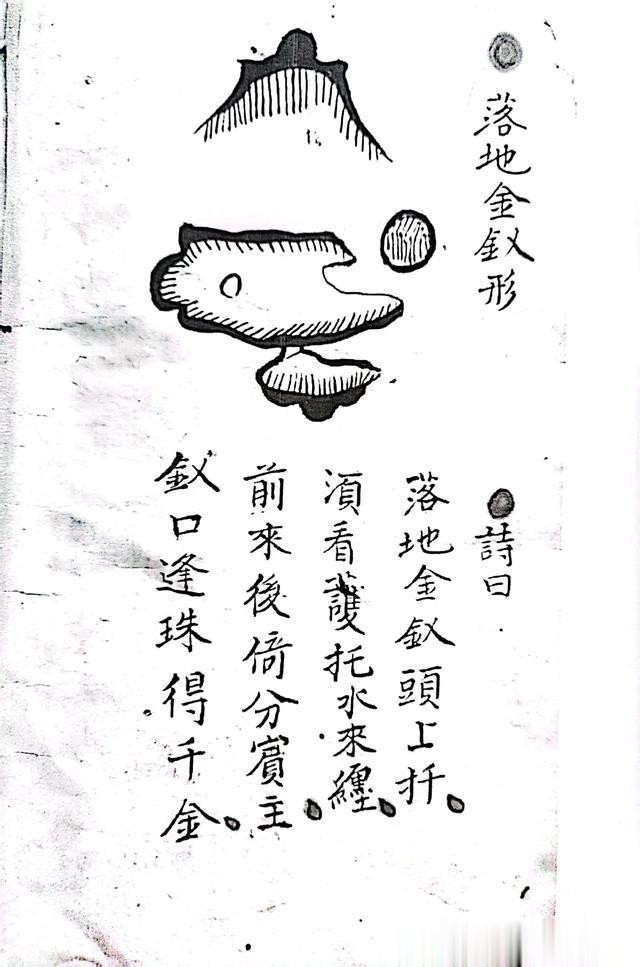 落地金釵形
詩曰
落地金釵頭上扦
須看護托水來纏
前來後倚分賓主
釵口逢珠得千金